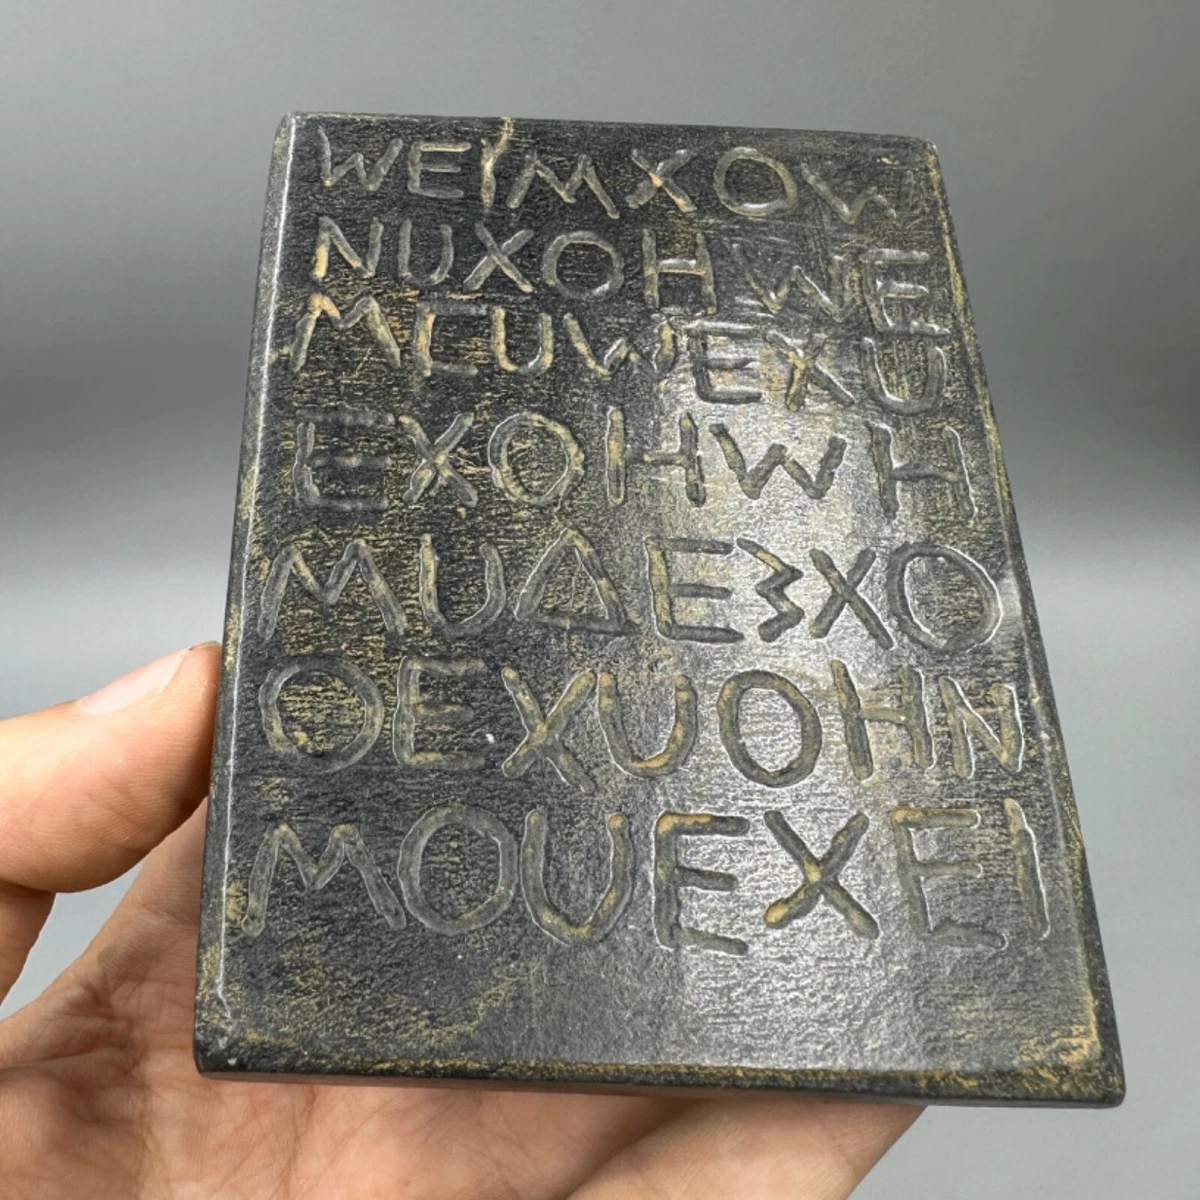 WEIMXOW
NUXOHWE
MEUWEXU
EXOHWH
MUΔEƷXO
OEXUOHN
MOUEXEI